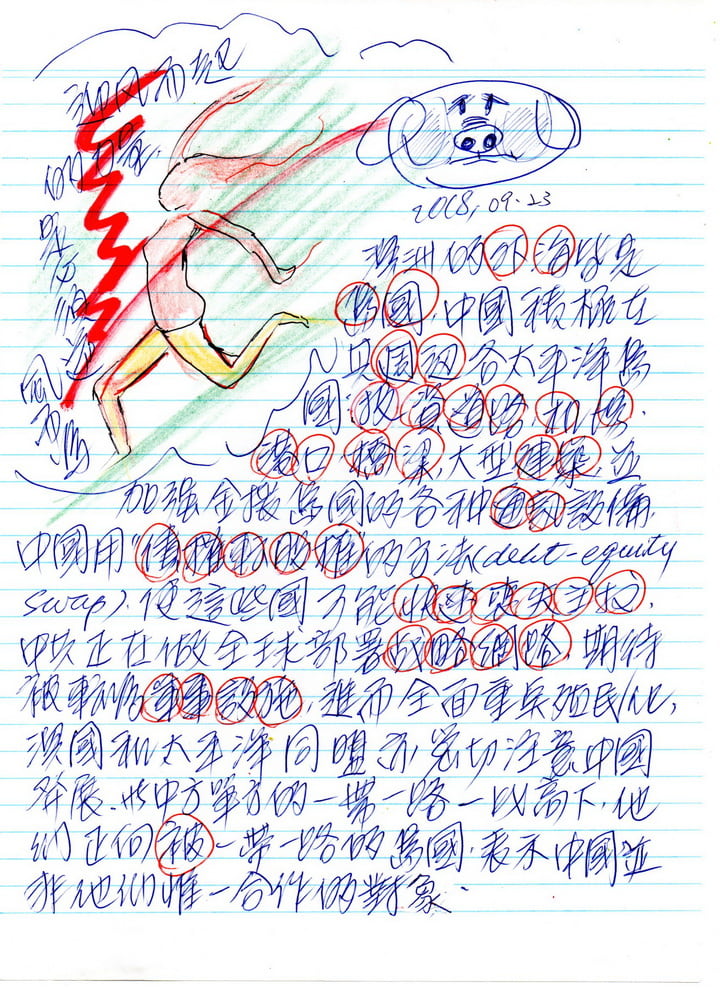 迎风而起
的力量
2018.09.23
澳洲的外海皆是
島國,中國積極在
其周迴各太平洋島
國投資道路、机場、
港口、橋梁,大型建築,並
加强金援島國的各種通訊設備,
中國用"債權和股權"的方法(debt-equity
swap),使這些國可能快速喪失主权,
中共正在做全球部署战略網路,期待
被轉為軍事設施,進而全面重兵殖民化,
澳國和太平洋同盟亦密切注意中國
發展,與中方單方的一帶一路一以高下,他
们正向被一帶一路的島國,表示中國並
非他们惟一合作的對象.